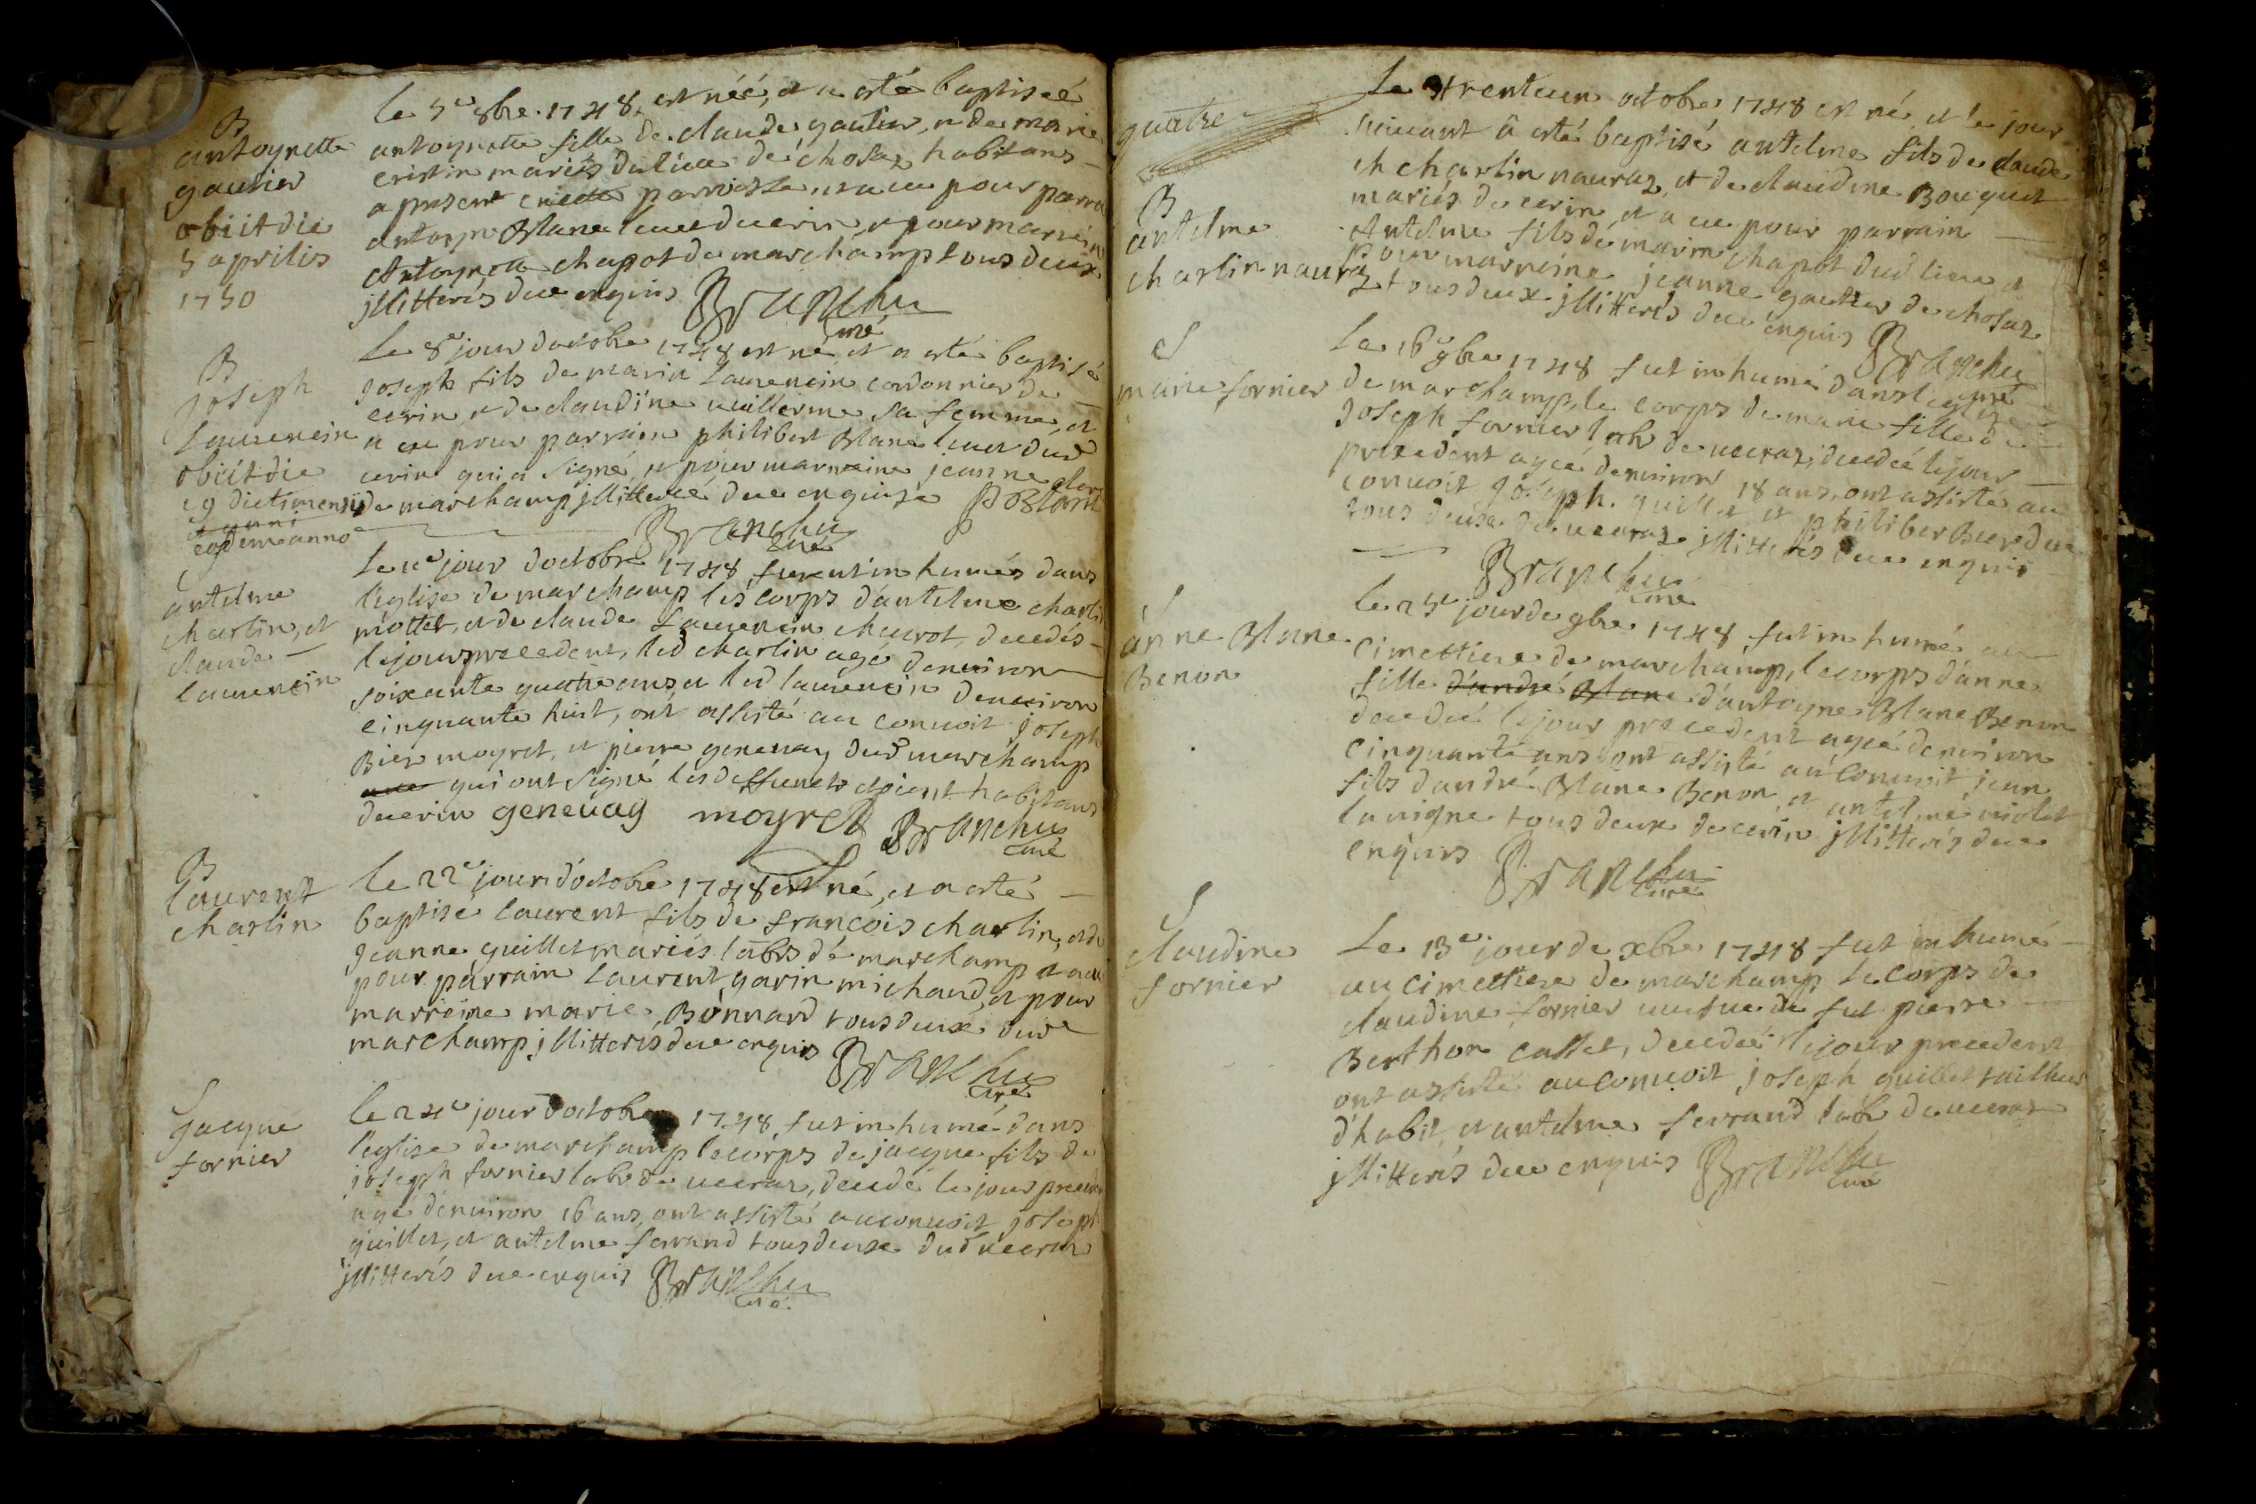 B
antoynette
gautier
obiit die
5 aprilis
1750
le 5e 8bre 1748 est néé, et a esté baptiséé
antoynette fille de claude gautier, et de marie
cristin mariés du lieu de chosaz habitans
a present en cette parroisse, et a eu pour parra
antoyne Blanc luuet de cerin, et pour marreine
Antoynette chapot de marchamp tous deux
jllitterés de ce enquis Branchu
curé
B
joseph
Laurencin
obiit die
19 dicti mensis
et anni
eodem anno
Le 8e jour d'octobre 1748 est né, et a esté baptisé
joseph fils de marin Laurencin cordonnier de
cerin, et de claudine uuillerme sa femme, et
a eu pour parrain philibert Blanc luuet dud
cerin qui a signé, et pour marreine jeanne
de marchamp jllitterée de ce enquise P Blanc
Branchu
curé
S
antelme
charlin, et
claude
laurencin
Le 11e jour d'octobre 1748, furent inhumés dans
l'eglise de marchamp les corps d'antelme charlin
mottet, et de claude Laurencin churot, decedés
le jour precedent, led charlin agé d'enuiron
soixante quatre ans, et led laurencin d'enuiron
cinquante huit, ont assisté au conuoit joseph
Bier moyret, et pierre geneuay dud marchamp
qui ont signé les deffuncts etoient habitans
de cerin geneuay moyret Branchu
curé
B
laurent
charlin
le 22e jour d'octobre 1748 est né, et a esté
baptisé laurent fils de francois charlin, et de
jeanne guillet mariés labrs de marchamp, et a eu
pour parrain laurent garin michaud, et pour
marreine marie Bonnard tous deux dud
marchamp jllitterés de ce enquis Branchu
curé
S
jacque
fornier
le 24e jour d'octobre 1748, fut inhumé dans
l'eglise de marchamp le corps de jacque fils de
joseph fornier labr de ueeraz, decedé le jour preced
agé d'enuiron 16 ans, ont assisté au conuoit joseph
guillet, et antelme ferrand tous deux dud ueeraz
jllitterés de ce enquis Branchu
curé
quatre
B
antelme
charlin nauraz
Le trenteun octobre 1748 est né, et le jour
suiuant a esté baptisé antelme fils de claude
charlin nauraz, et de claudine Bouquet
mariés de cerin, et a eu pour parrain
Antelme fils de marin chapot dud lieu et
pour marreine jeanne gautier de chosaz
tous deux jllitterés de ce enquis Branchu
curé
S
marie fornier
Le 16e 9bre 1748 fut inhumé dans l'eglise
de marchamp, le corps de marie fille de
joseph fornier labr de ueeraz, decedée le jour
precedent ageé d'enuiron 18 ans, ont assisté au
conuoit joseph guillet et philiber
tous deux de ueeraz jllitterés de ce enquis
Branchu
curé
anne Blanc
Benon
le 25e jour de 9bre 1748 fut inhumé au
cimettiere de marchamp, le corps d'anne
fille d'andré Blanc d'antoyne Blanc Benon
decedeé le jour precedent ageé d'enuiron
cinquante ans ont assisté au conuoit jean
fils d'andré Blanc Benon, et antelme uiolet
la uigne tous deux de cerin jllitterés de ce
enquis Branchu
curé
S
claudine
fornier
Le 13e jour de xbre 1748 fut inhumé
au cimettiere de marchamp le corps de
claudine fornier ueufue de fut pierre
Berthon callet, decedeé le jour precedent
ont assisté au conuoit joseph guillet tailleur
d'habit, et antelme ferrand labr de ueeraz
jllitterés de ce enquis Branchu
curé